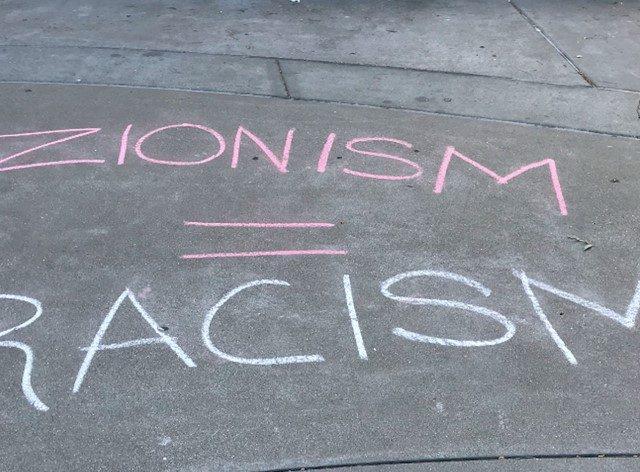 ZIONISM
=
RACISM